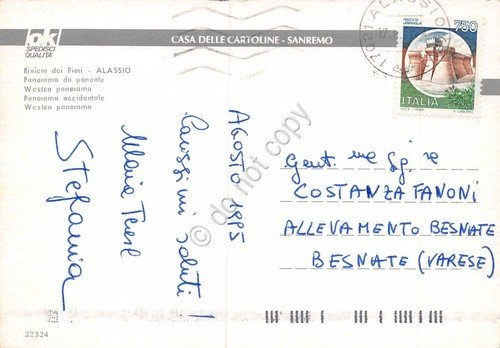 ok
SPEDISCI
QUALITÀ
CASA DELLE CARTOLINE - SANREMO
Riviera dei Fiori - ALASSIO
Panorama da ponente
Westen panorama
Panorama occidentale
Westen panorama
17021 ALASSIO
750
ITALIA
AGOSTO 1995
Carissimi saluti!
Maria Terese
Stefania
Gent.me Sg.re
COSTANZA FANONI
ALLEVAMENTO BESNATE
BESNATE (VARESE)
do not copy
22324